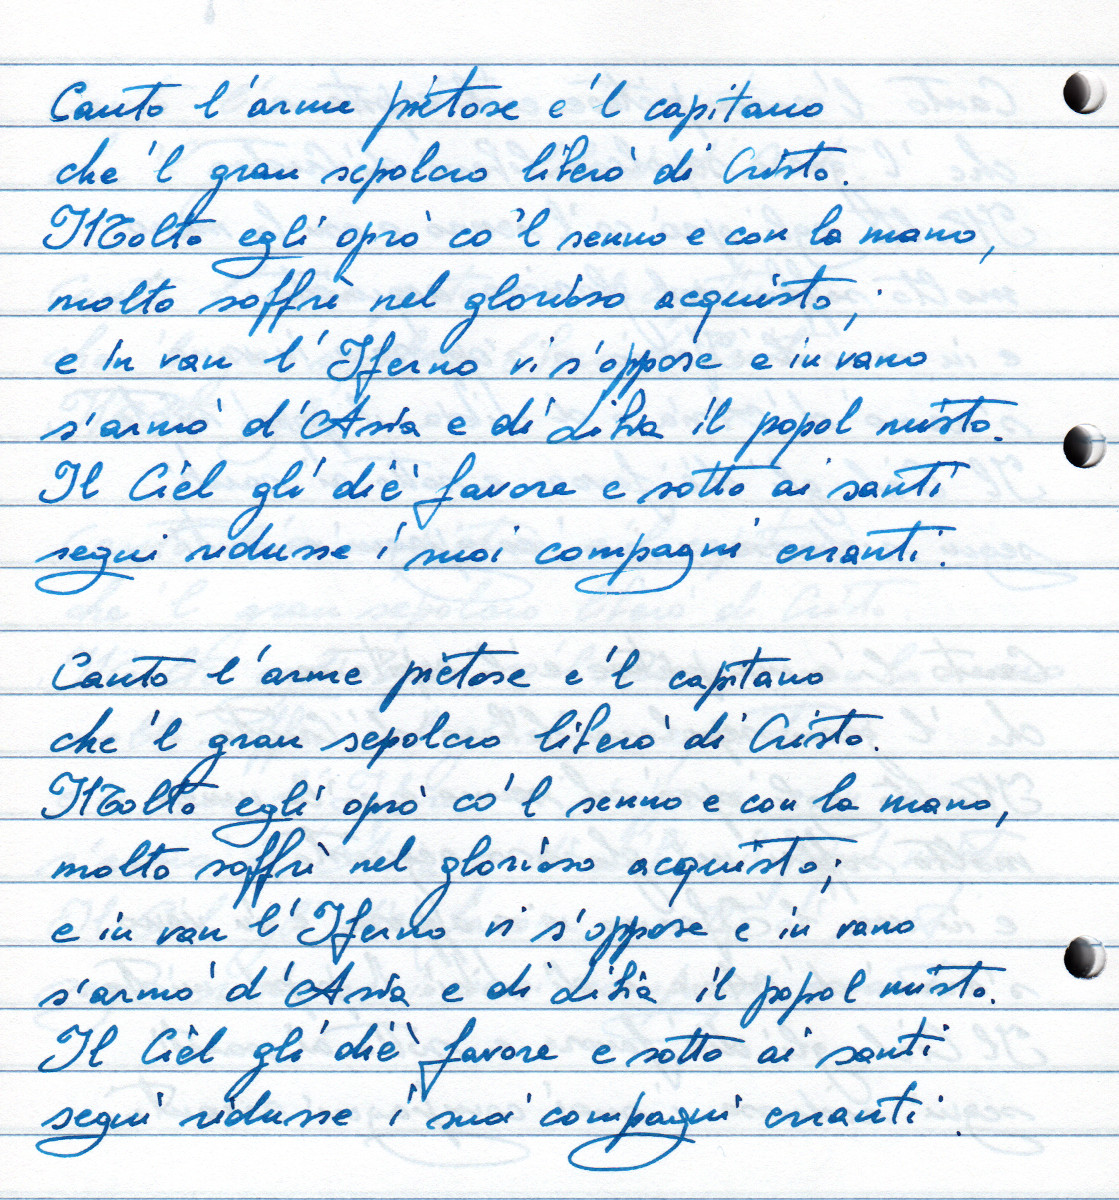 Canto l'arme pietose e 'l capitano
che 'l gran sepolcro liberò di Cristo.
Molto egli oprò co 'l senno e con la mano,
molto soffrì nel glorioso acquisto;
e in van l'Iferno vi s'oppose e in vano
s'armò d'Asia e di Libia il popol misto.
Il Ciel gli diè favore e sotto ai santi
segni ridusse i suoi compagni erranti.
Canto l'arme pietose e 'l capitano
che 'l gran sepolcro liberò di Cristo.
Molto egli oprò co 'l senno e con la mano,
molto soffrì nel glorioso acquisto;
e in van l'Iferno vi s'oppose e in vano
s'armò d'Asia e di Libia il popol misto.
Il Ciel gli diè favore e sotto ai santi
segni ridusse i suoi compagni erranti.